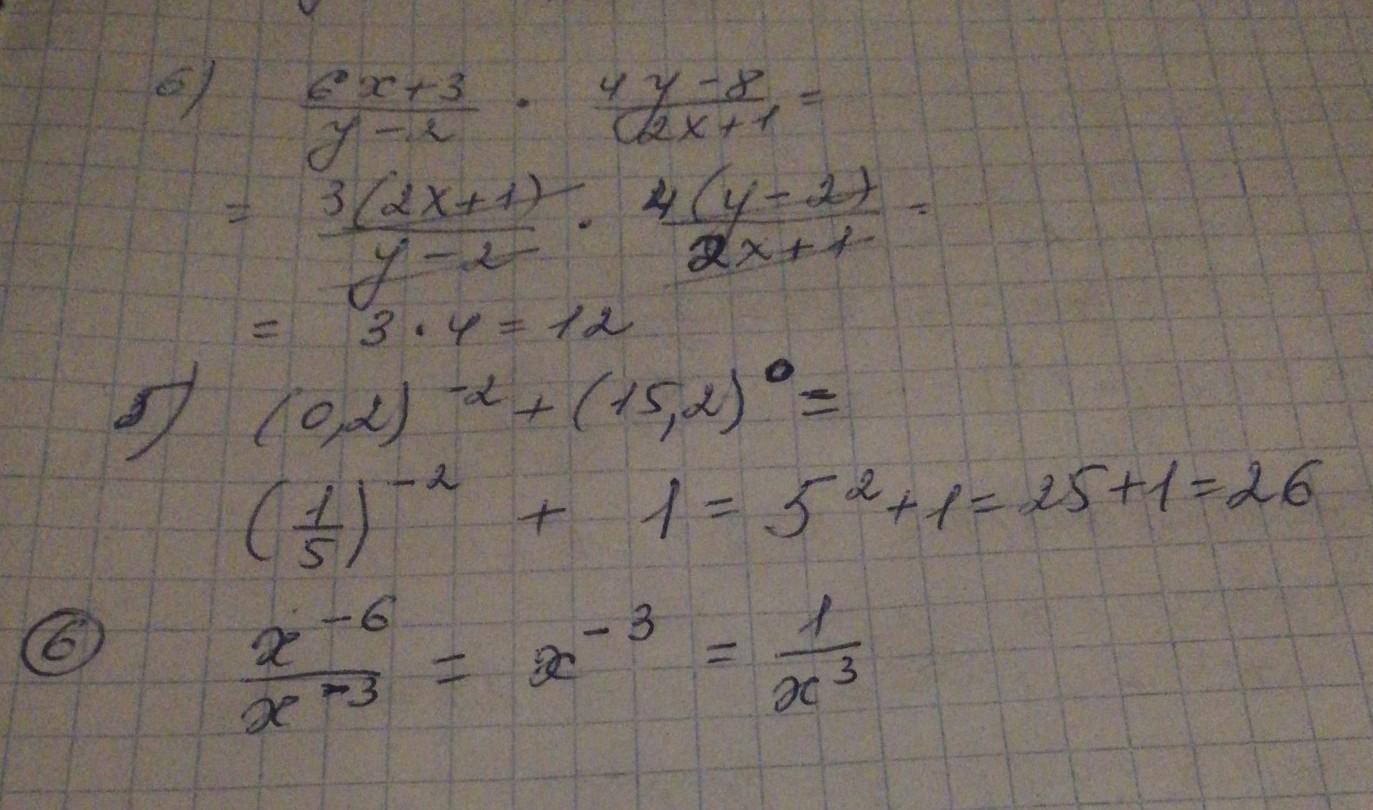 б) (6x+3)/(y-2) · (4y-8)/(2x+1) =
= 3(2x+1)/(y-2) · 4(y-2)/(2x+1) =
= 3·4=12
5) (0,2)⁻² + (15,2)⁰ =
(1/5)⁻² + 1 = 5² + 1 = 25+1 = 26
6 x⁻⁶/x⁻³ = x⁻³ = 1/x³